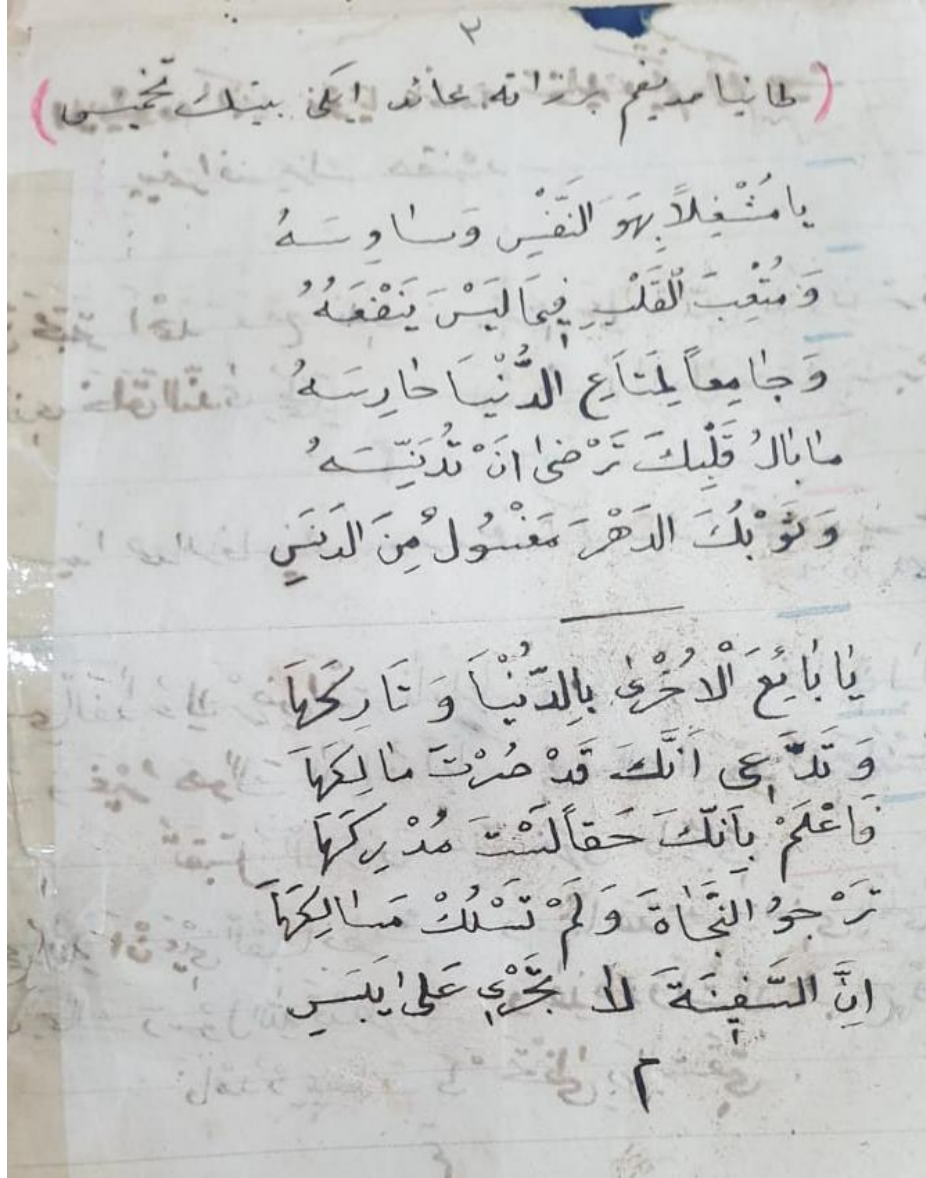 ٣
( طانيا مدينم بر زاته عائد ايكى بيتك تخميس )
يا مُشْغِلاً بِهَوَ النَّفْسِ وَسَاوِسَهُ
وَ مُتْعِبَ الْقَلْبِ فِيمَا لَيْسَ يَنْفَعَهُ
وَ جٰامِعاً لِمَتَاعِ الدُّنْيَا حٰارِسَهُ
مٰا بٰالُ قَلْبِكَ تَرْضىٰ انَ تُدَنِّسَهُ
وَ ثَوْبُكَ الدَهْرَ مَغْسُولُ مِنَ الدَنَسِ
يٰا بٰائِعَ الْاُخْرىٰ بِالدُّنْيَا وَ تَارِكَهَا
وَ تَدَّعِى اَنَّكَ قَدْ صُرْتَ مٰالِكَهَا
فَاعْلَمْ بِاَنَّكَ حَقاً لَسْتَ مُدْرِكَهَا
تَرْجُو النَّجٰاةَ وَ لَمْ تَسْلُكْ مَسٰالِكَهَا
اِنَّ السَّفِينَةَ لاٰ تَجْرِي عَلىٰ يَبَسِ
م